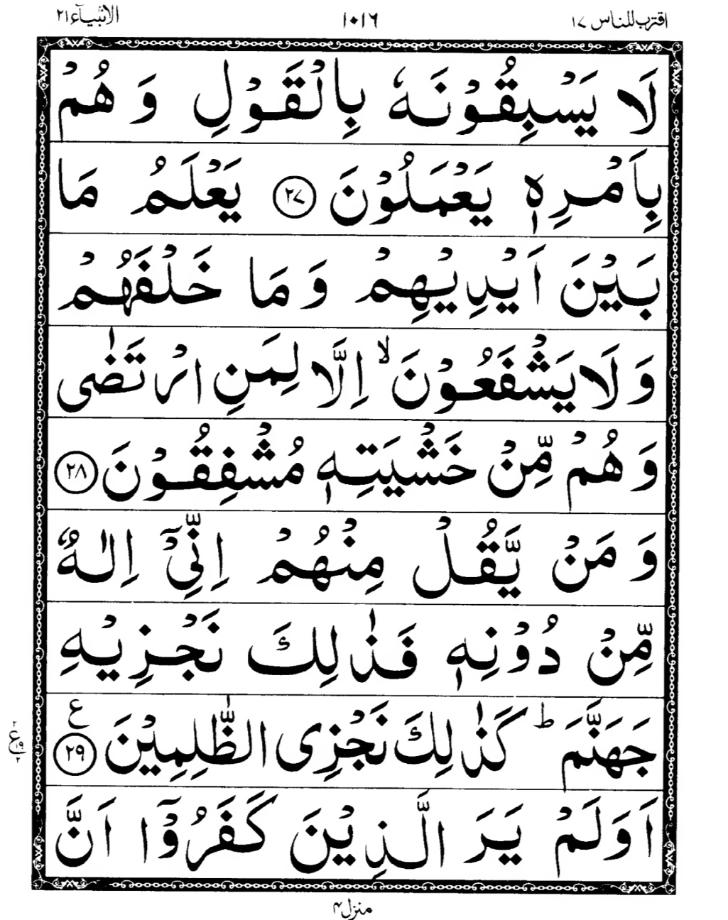 اقترب للناس ١٧ ١٠١٦ الانبیآء ٢١
لَا یَسْبِقُوْنَهٗ بِالْقَوْلِ وَ هُمْ
بِاَمْرِهٖ یَعْمَلُوْنَ ﴿٢٧﴾ یَعْلَمُ مَا
بَیْنَ اَیْدِیْهِمْ وَ مَا خَلْفَهُمْ
وَ لَا یَشْفَعُوْنَ ۙ اِلَّا لِمَنِ ارْتَضٰی
وَ هُمْ مِّنْ خَشْیَتِهٖ مُشْفِقُوْنَ ﴿٢٨﴾
وَ مَنْ یَّقُلْ مِنْهُمْ اِنِّیْۤ اِلٰهٌ
مِّنْ دُوْنِهٖ فَذٰلِكَ نَجْزِیْهِ
جَهَنَّمَ ؕ كَذٰلِكَ نَجْزِی الظّٰلِمِیْنَ ﴿٢٩﴾ ع
٢ ع ١٩ ٢
اَوَ لَمْ یَرَ الَّذِیْنَ كَفَرُوْۤا اَنَّ
منزل ۴